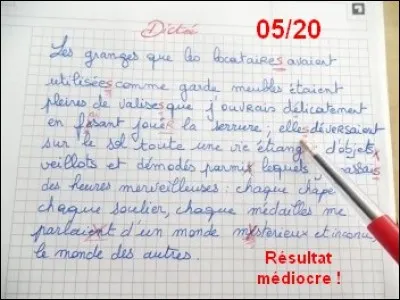 Dictée
05/20
Les granges que les locataires avaient
utilisées comme garde meubles étaient
pleines de valises que j'ouvrais délicatement
en fisant jouer la serrure; elles déversaient
sur le sol toute une vie étrange d'objets
veillots et démodés parmis lequels
des heures merveilleuses : chaque chapé
chaque soulier, chaque médailles me
parlaient d'un monde mystérieux et inconnu,
le monde des autres.
Résultat
médiocre !